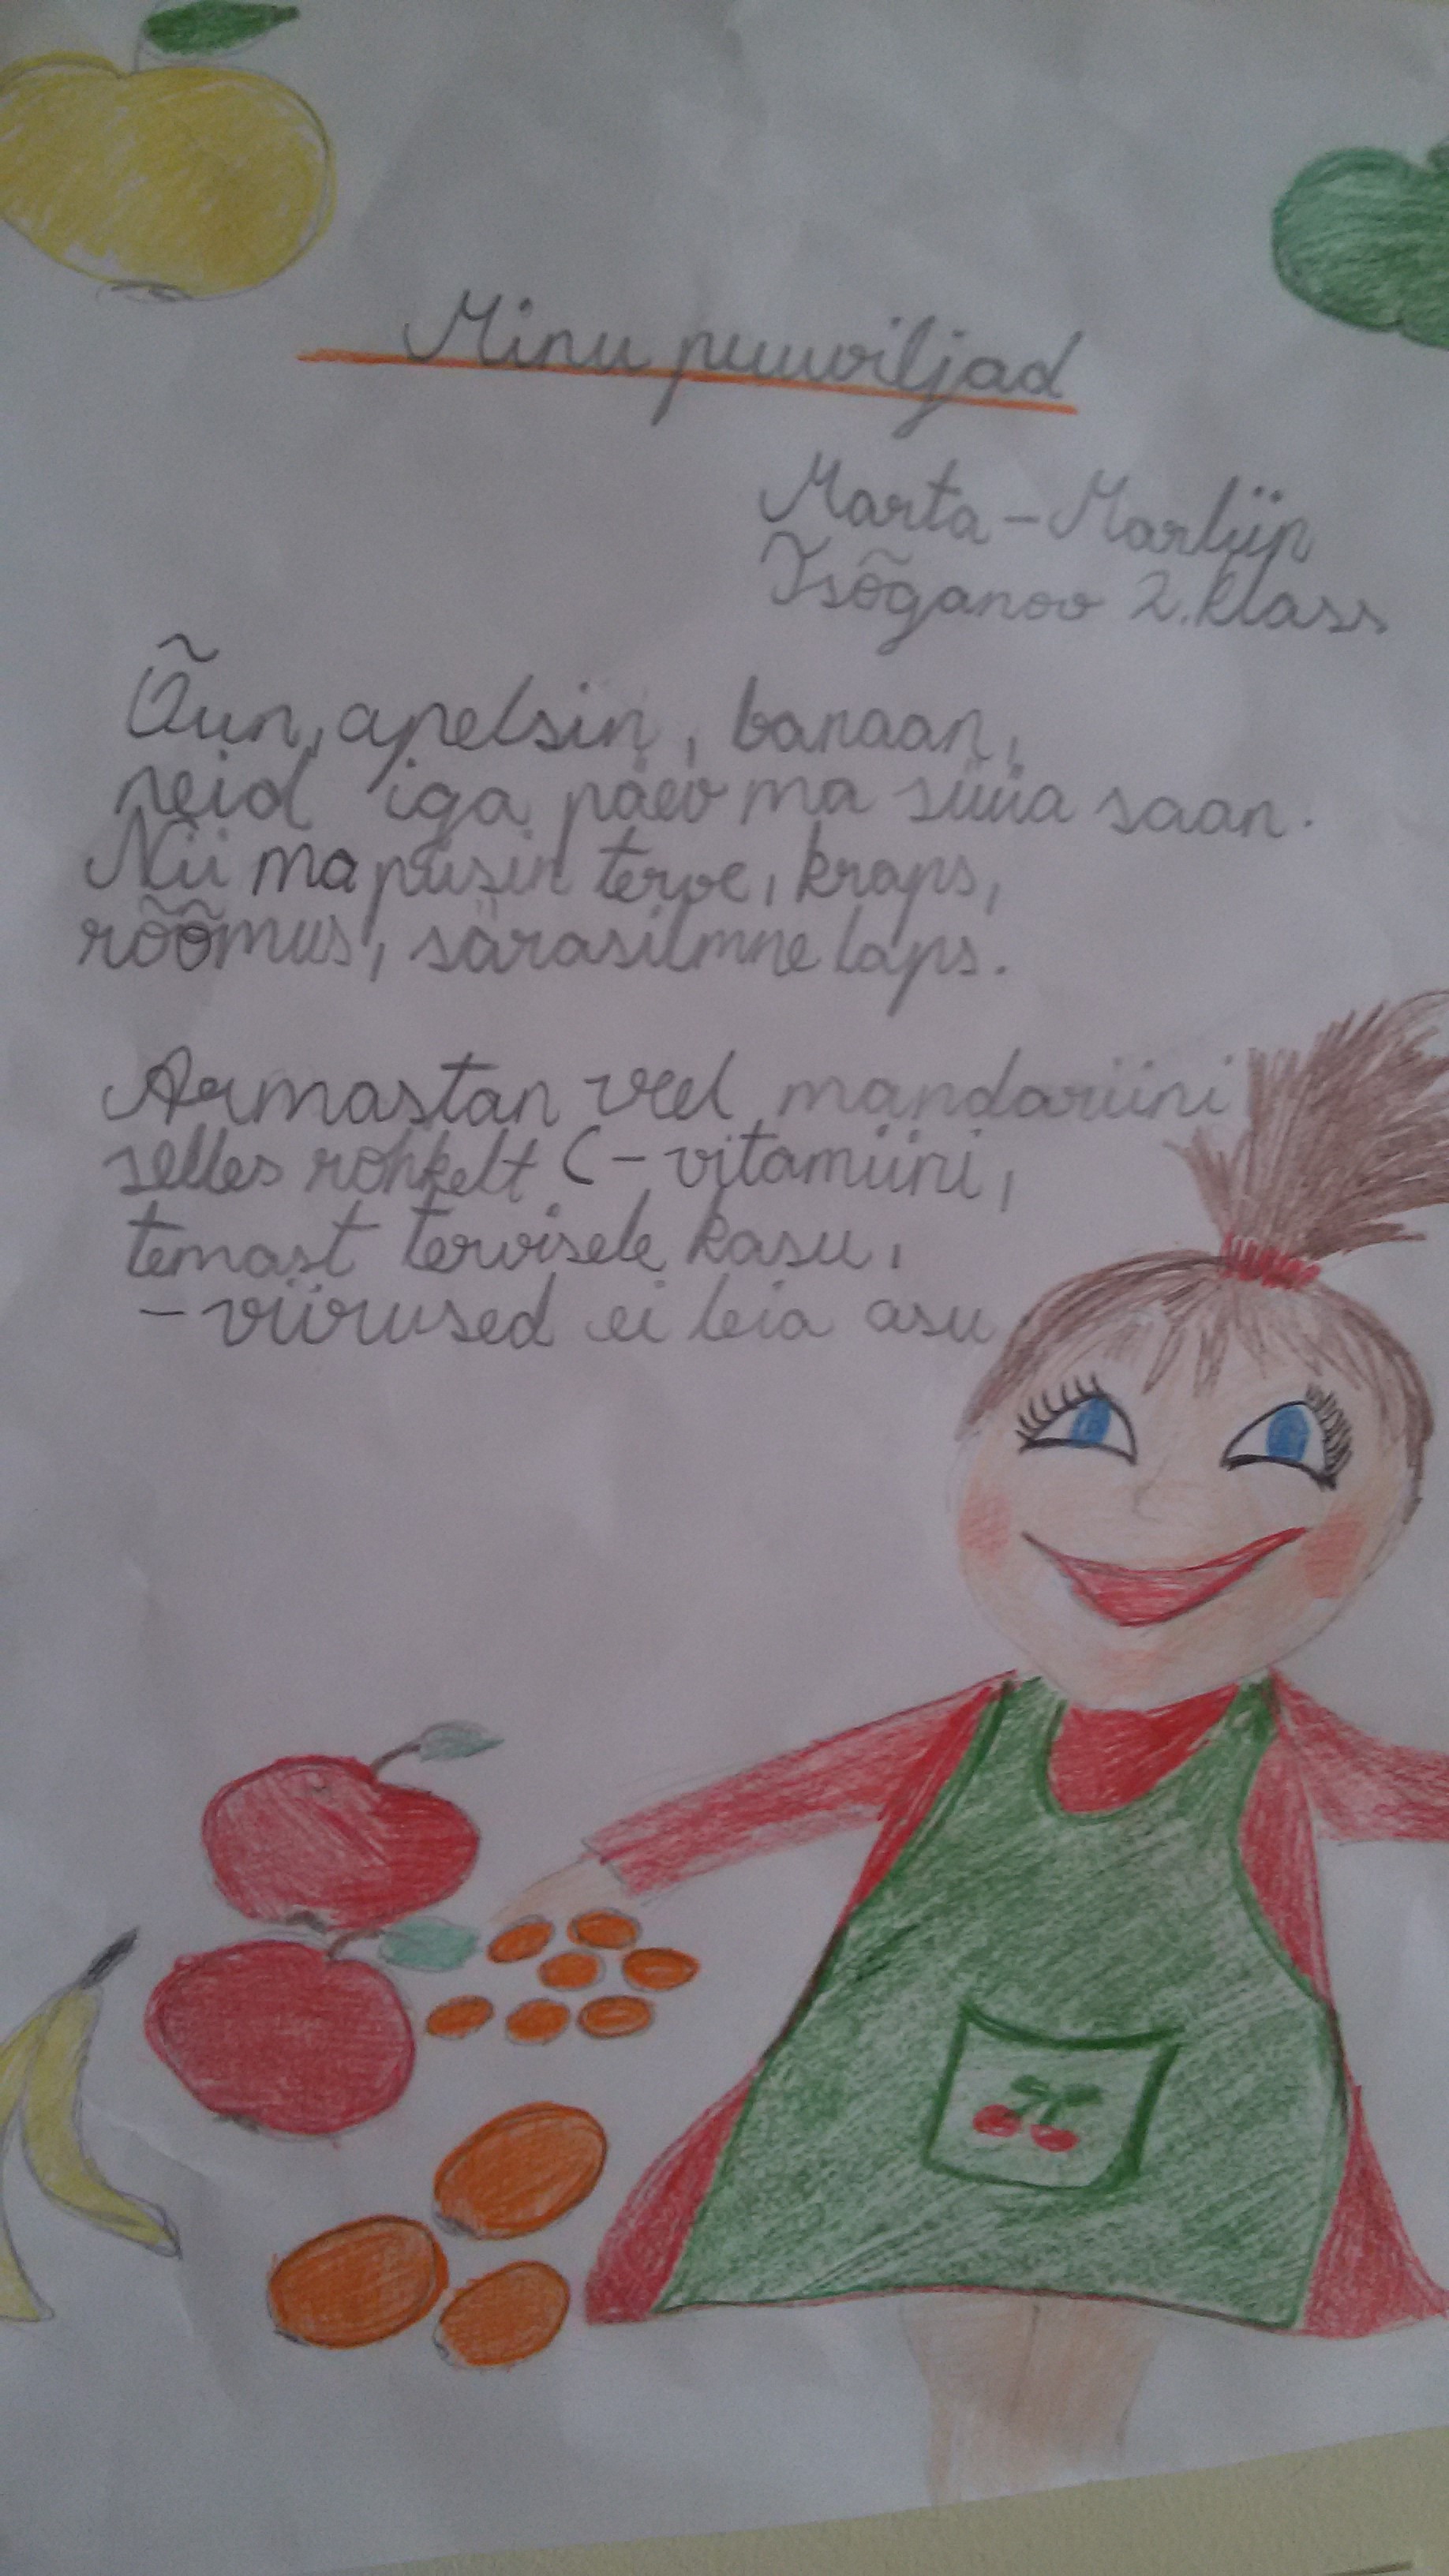 Minu puuviljad
Marta-Marliin
Tsõganov 2.klass
Õun, apelsin, banaan,
neid iga päev ma süüa saan.
Nii ma püsin terve, kraps,
rõõmus, särasilmne laps.
Armastan veel mandariini
selles rohkelt C-vitamiini,
temast tervisele kasu,
-viirused ei leia asu